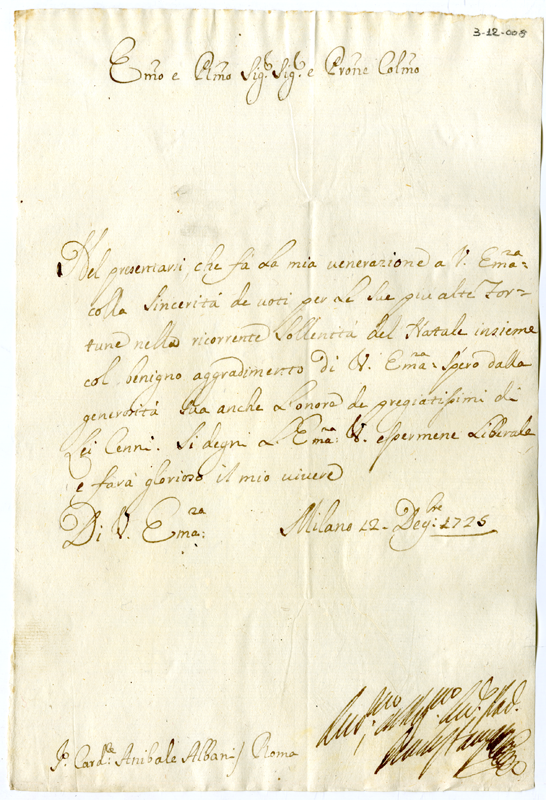 3-12-005
Emo e Rmo Sigr. Sigr. e Prone Colmo
Nel presentarsi, che fà la mia venerazione a V. Emza:
colla sincerità de voti per le sue più alte For=
tune nella ricorrente sollenità del Natale insieme
col benigno aggradimento di V. Emza: spero dalla
generosità sua anche l'onore de pregiatissimi di
Lei Cenni. Si degni l'Emza: V. essermene liberale,
e farà glorioso il mio vivere
Di V. Emza: Milano 12. Degbre: 1725
Sr. Cardle: Anibale Albani / Roma